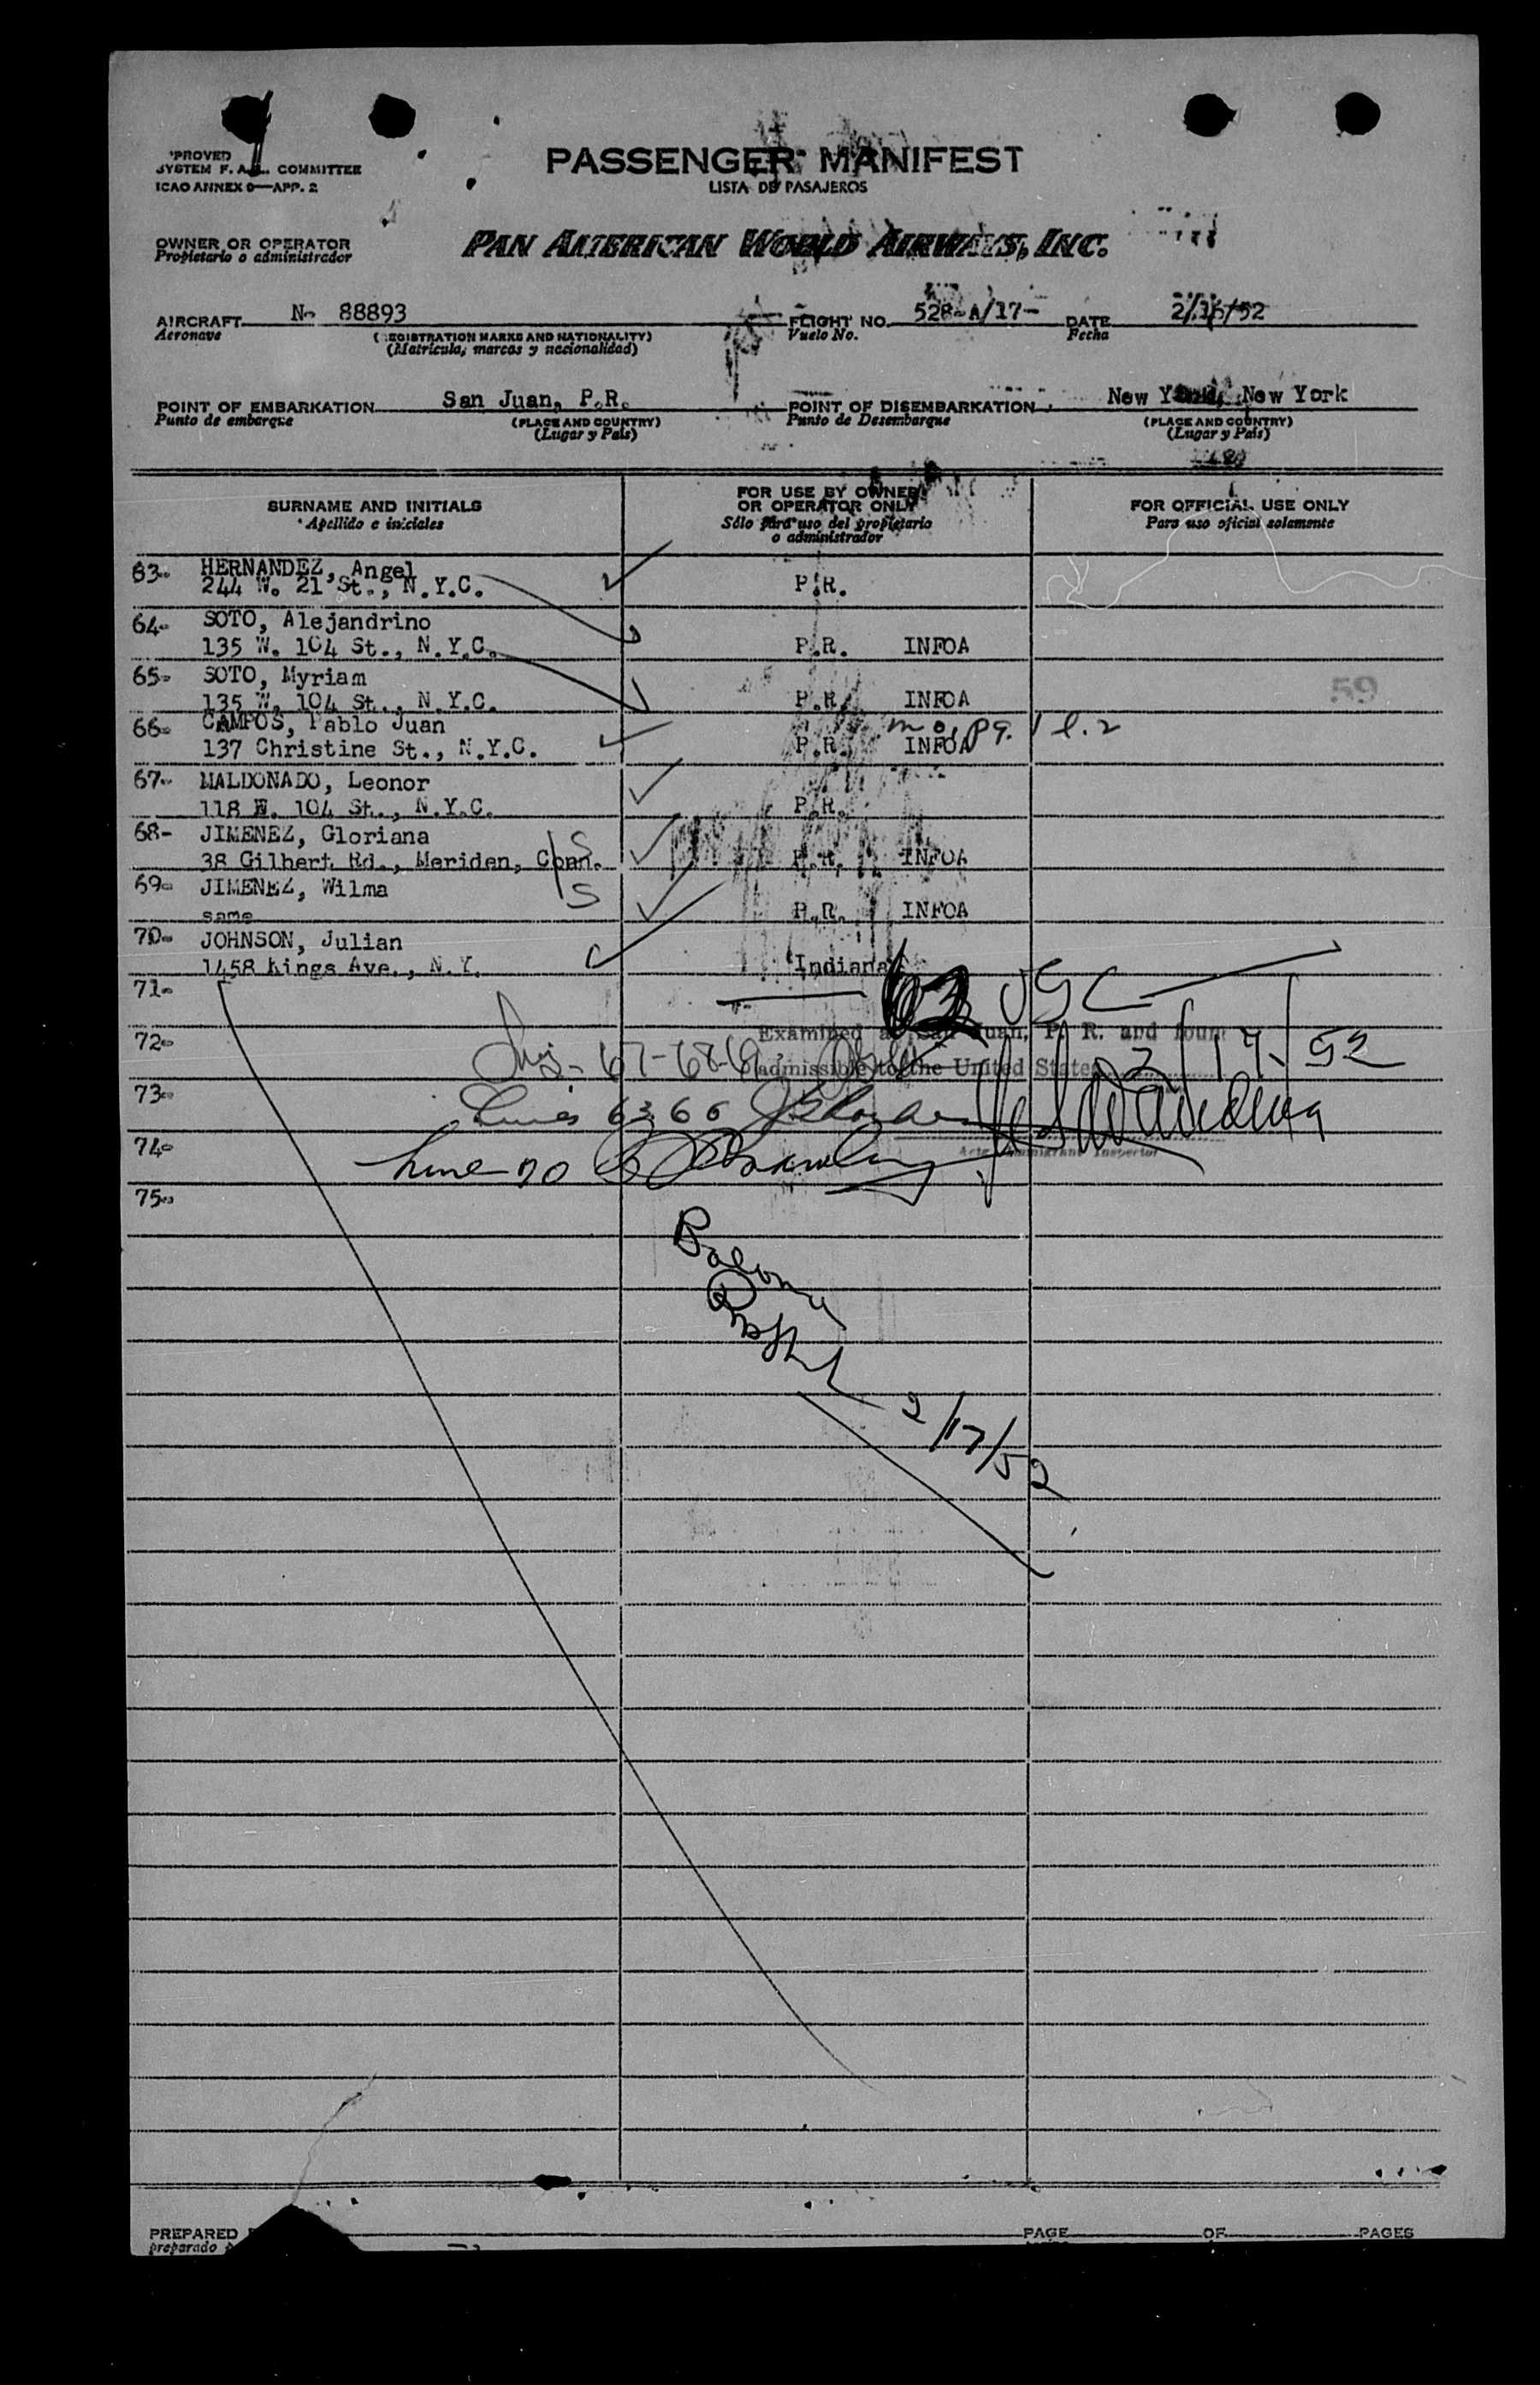 PROVED
SYSTEM F. A. L. COMMITTEE
ICAO ANNEX 9—APP. 2
PASSENGER MANIFEST
LISTA DE PASAJEROS
OWNER OR OPERATOR
Propietario o administrador
PAN AMERICAN WORLD AIRWAYS, INC.
AIRCRAFT N- 88893 FLIGHT NO. 528-A/17- DATE 2/16/52
Aeronave (REGISTRATION MARKS AND NATIONALITY) Vuelo No. Fecha
(Matricula, marcas y nacionalidad)
POINT OF EMBARKATION San Juan, P.R. POINT OF DISEMBARKATION New York, New York
Punto de embarque (PLACE AND COUNTRY) Punto de Desembarque (PLACE AND COUNTRY)
(Lugar y Pais) (Lugar y Pais)
SURNAME AND INITIALS
Apellido e iniciales
FOR USE BY OWNER
OR OPERATOR ONLY
Sólo para uso del propietario
o administrador
FOR OFFICIAL USE ONLY
Para uso oficial solamente
63- HERNANDEZ, Angel
244 W. 21 St., N.Y.C. P.R.
64- SOTO, Alejandrino
135 W. 104 St., N.Y.C. P.R. INFOA
65- SOTO, Myriam
135 W. 104 St., N.Y.C. P.R. INFOA
59
66- CAMPOS, Pablo Juan mo, pg. 1 l. 2
137 Christine St., N.Y.C. P.R. INFOA
67- MALDONADO, Leonor
118 E. 104 St., N.Y.C. P.R.
68- JIMENEZ, Gloriana S
38 Gilbert Rd., Meriden, Conn. P.R. INFOA
69- JIMENEZ, Wilma S
same P.R. INFOA
70- JOHNSON, Julian
1458 Kings Ave., N.Y. Indiana
71- USC
72- Examined at San Juan, P. R. and found
67-68-69 admissible to the United States 2/17/52
73- Lines 63 66
74- Line 70
Acting Immigrant Inspector
75-
2/17/52
PREPARED
preparado
PAGE OF PAGES